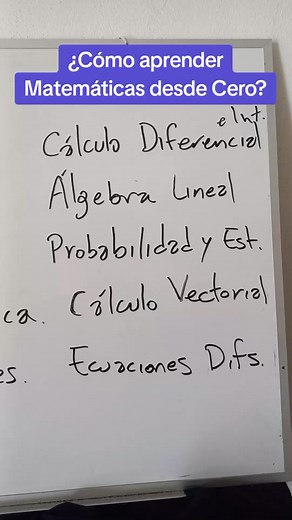 ¿Cómo aprender
Matemáticas desde Cero?
e Int.
Cálculo Diferencial
Álgebra Lineal
Probabilidad y Est.
ca. Cálculo Vectorial
es. Ecuaciones Difs.